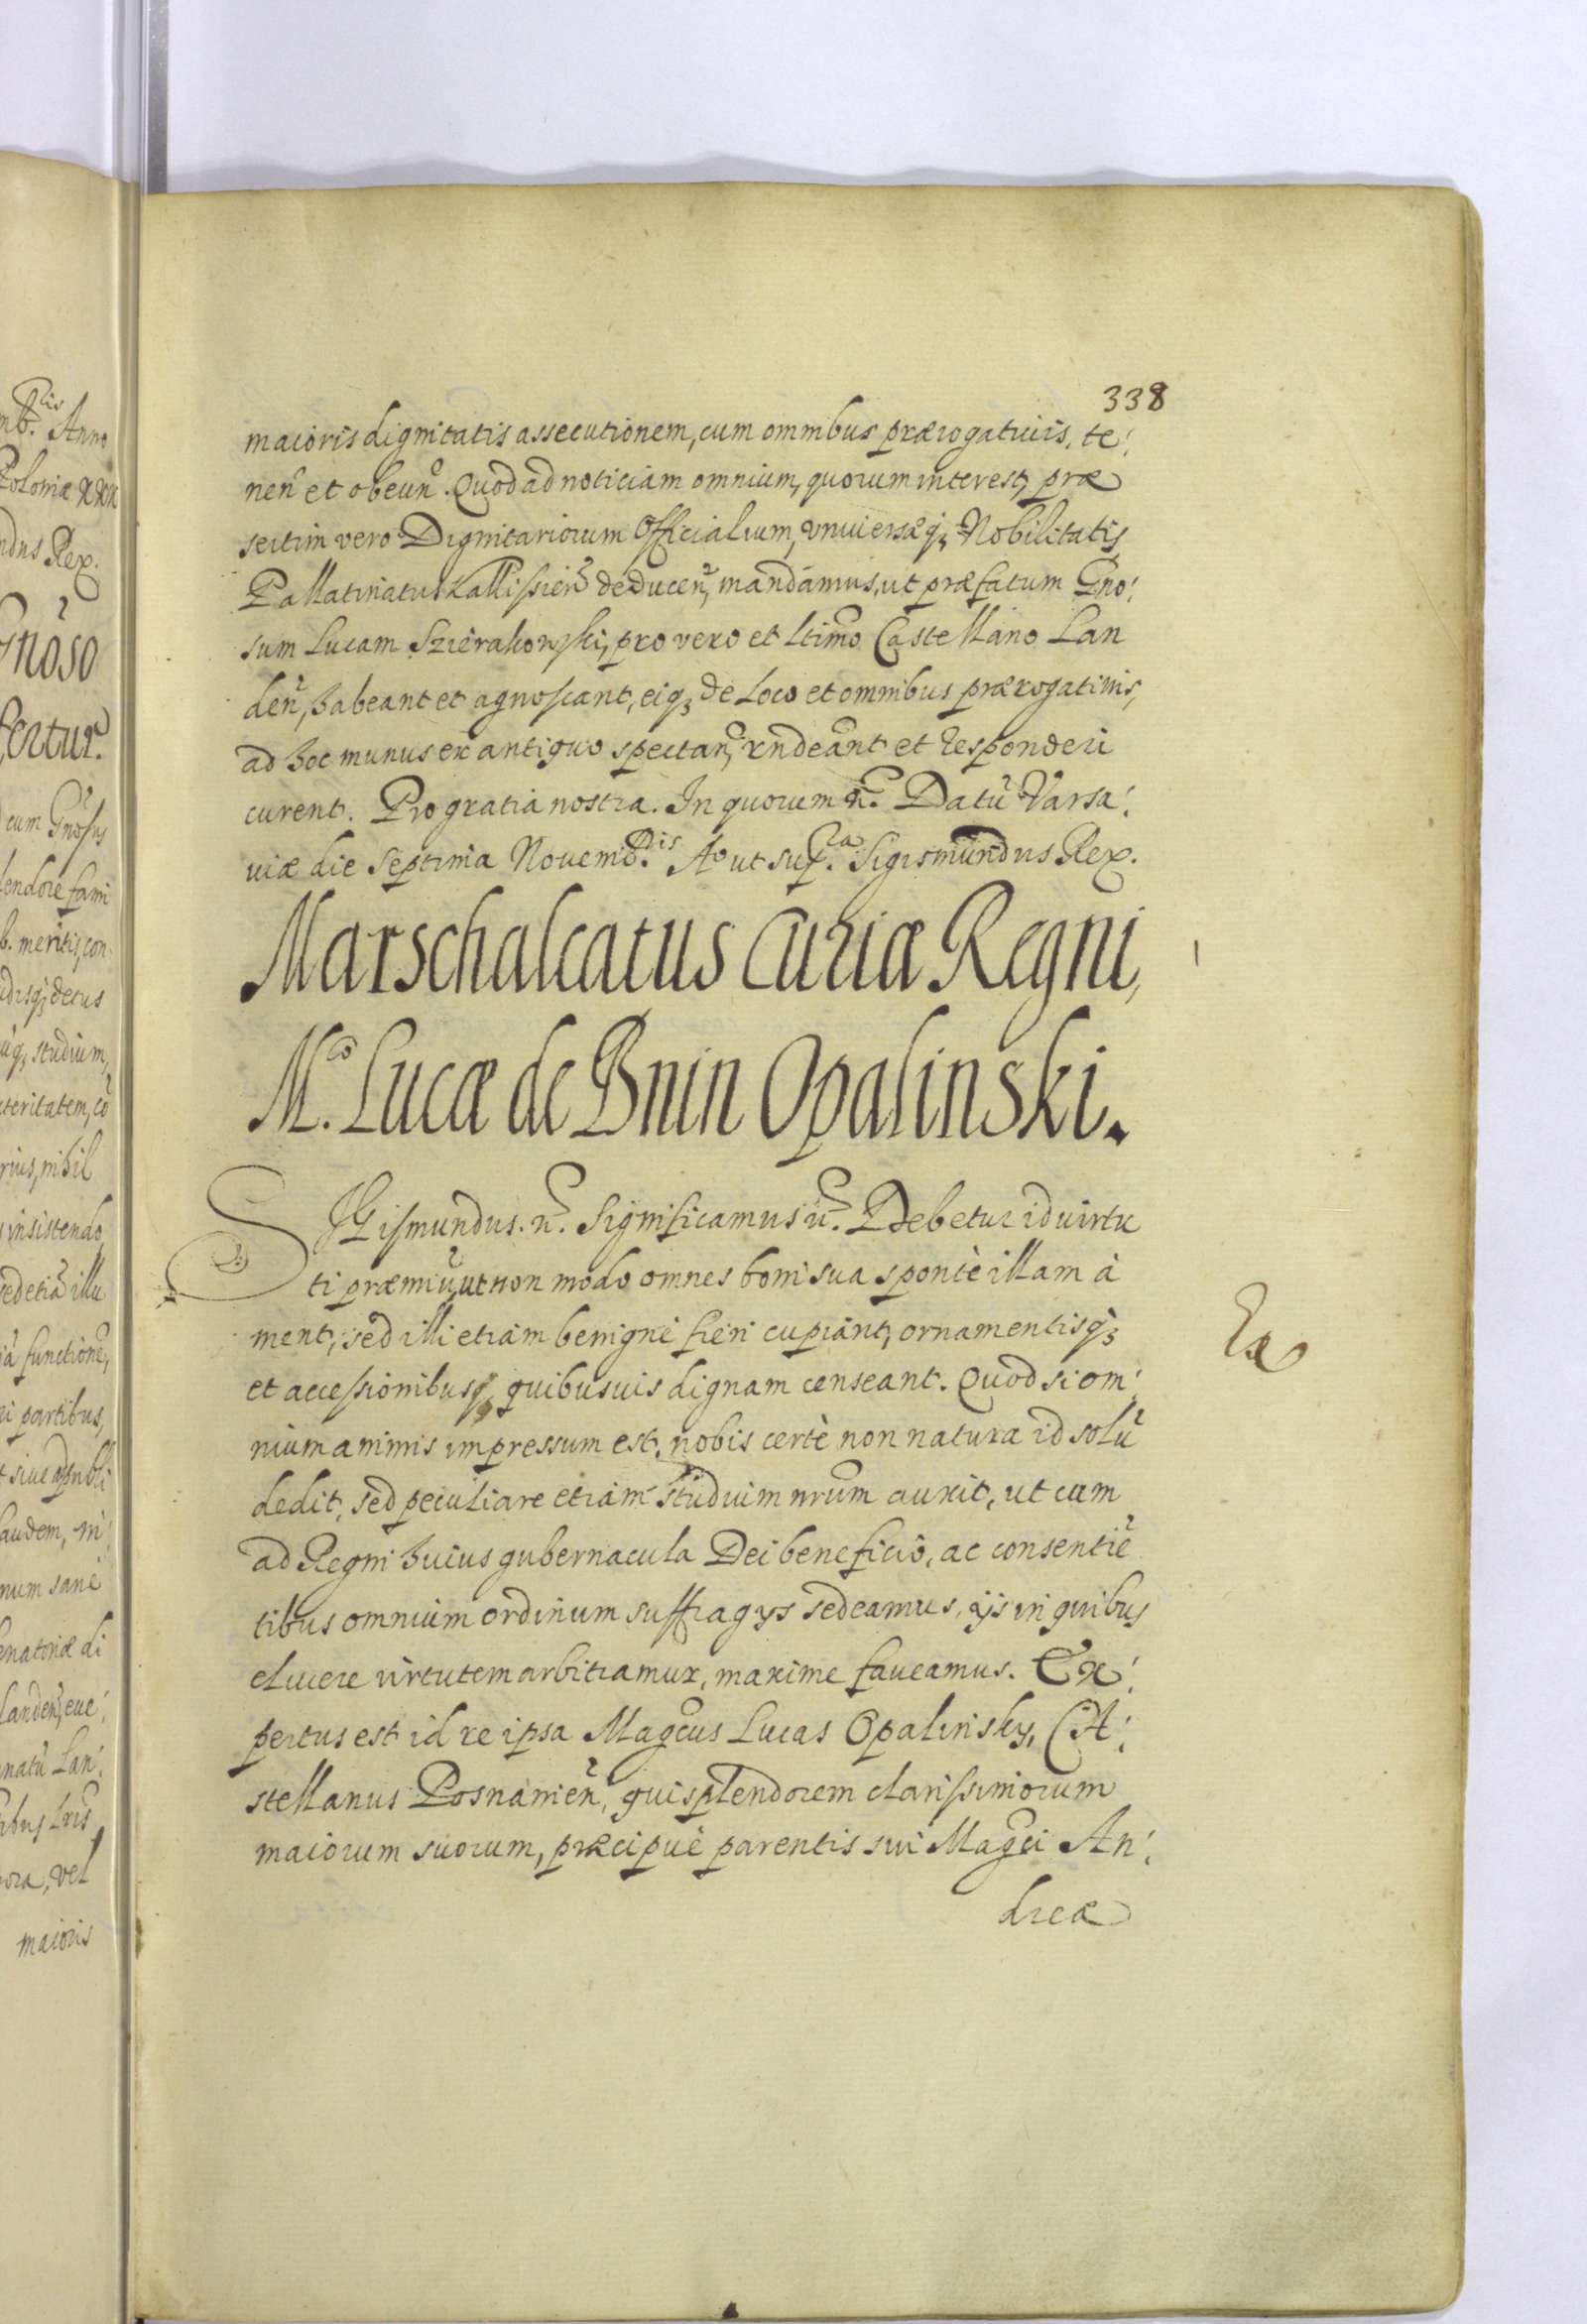 338
maioris dignitatis assecutionem, cum omnibus prærogatiuis, te:
neñ et obeuñ. Quod ad noticiam omnium, quorum interest, præ
sertim vero Dignitariorum Officialium, vniuersæq3 Nobilitatis
Pallatinatus Kallissieñ deduceñ, mandamus, ut præfatum Gno:
sum Lucam Szierakowski, pro vero et ltimo Castellano Lan
deñ, habeant et agnoscant, eiq3 de loco et omnibus prærogatiuis,
ad hoc munus ex antiquo spectañ, rñdeant et responderi
curent. Pro gratia nostra. In quorum &c. Datũ Varsa:
uiæ die Septima Nouemb.ris Aº ut sup.ra Sigismundus Rex.
Marschalcatus Curiæ Regni,
M.co Lucæ de Bnin Opalinski.
SIGismundus. &c. Significamus &c. Debetur id virtu
ti præmiũ, ut non modo omnes boni sua spontè illam a
ment, sed illi etiam benignè fieri cupiant, ornamentisq3
et accessionibus, quibusuis dignam censeant. Quod si om:
nium animis impressum est, nobis certè non natura id solũ
dedit, sed peculiare etiam studium nrum auxit, ut cum
ad Regni huius gubernacula Dei beneficio, ac consentiẽ
tibus omnium ordinum suffragys sedeamus, ijs in quibus
elucere virtutem arbitramur, maxime faueamus. Ex:
pertus est id re ipsa Magcus Lucas Opalinsky, CA:
stellanus Posnanieñ, qui splendorem clarissimorum
maiorum suorum, præcipuè parentis sui Magci An:
dreæ